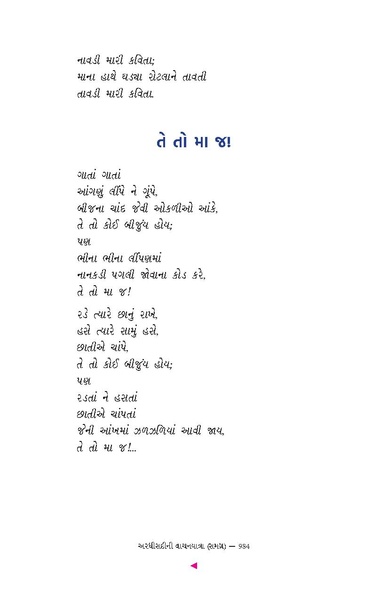 નાવડી મારી કવિતા;
માના હાથે ઘડ્યા રોટલાને તાવતી
તાવડી મારી કવિતા.
તે તો મા જ!
ગાતાં ગાતાં
આંગણું લીંપે ને ગૂંપે,
બીજના ચાંદ જેવી ઓકળીઓ આંકે,
તે તો કોઈ બીજુંય હોય;
પણ
ભીના ભીના લીંપણમાં
નાનકડી પગલી જોવાના કોડ કરે,
તે તો મા જ!
રડે ત્યારે છાનું રાખે,
હસે ત્યારે સામું હસે,
છાતીએ ચાંપે,
તે તો કોઈ બીજુંય હોય;
પણ
રડતાં ને હસતાં
છાતીએ ચાંપતાં
જેની આંખમાં ઝળઝળિયાં આવી જાય,
તે તો મા જ!...
અરધીસદીની વાચનયાત્રા (સમગ્ર) — 984